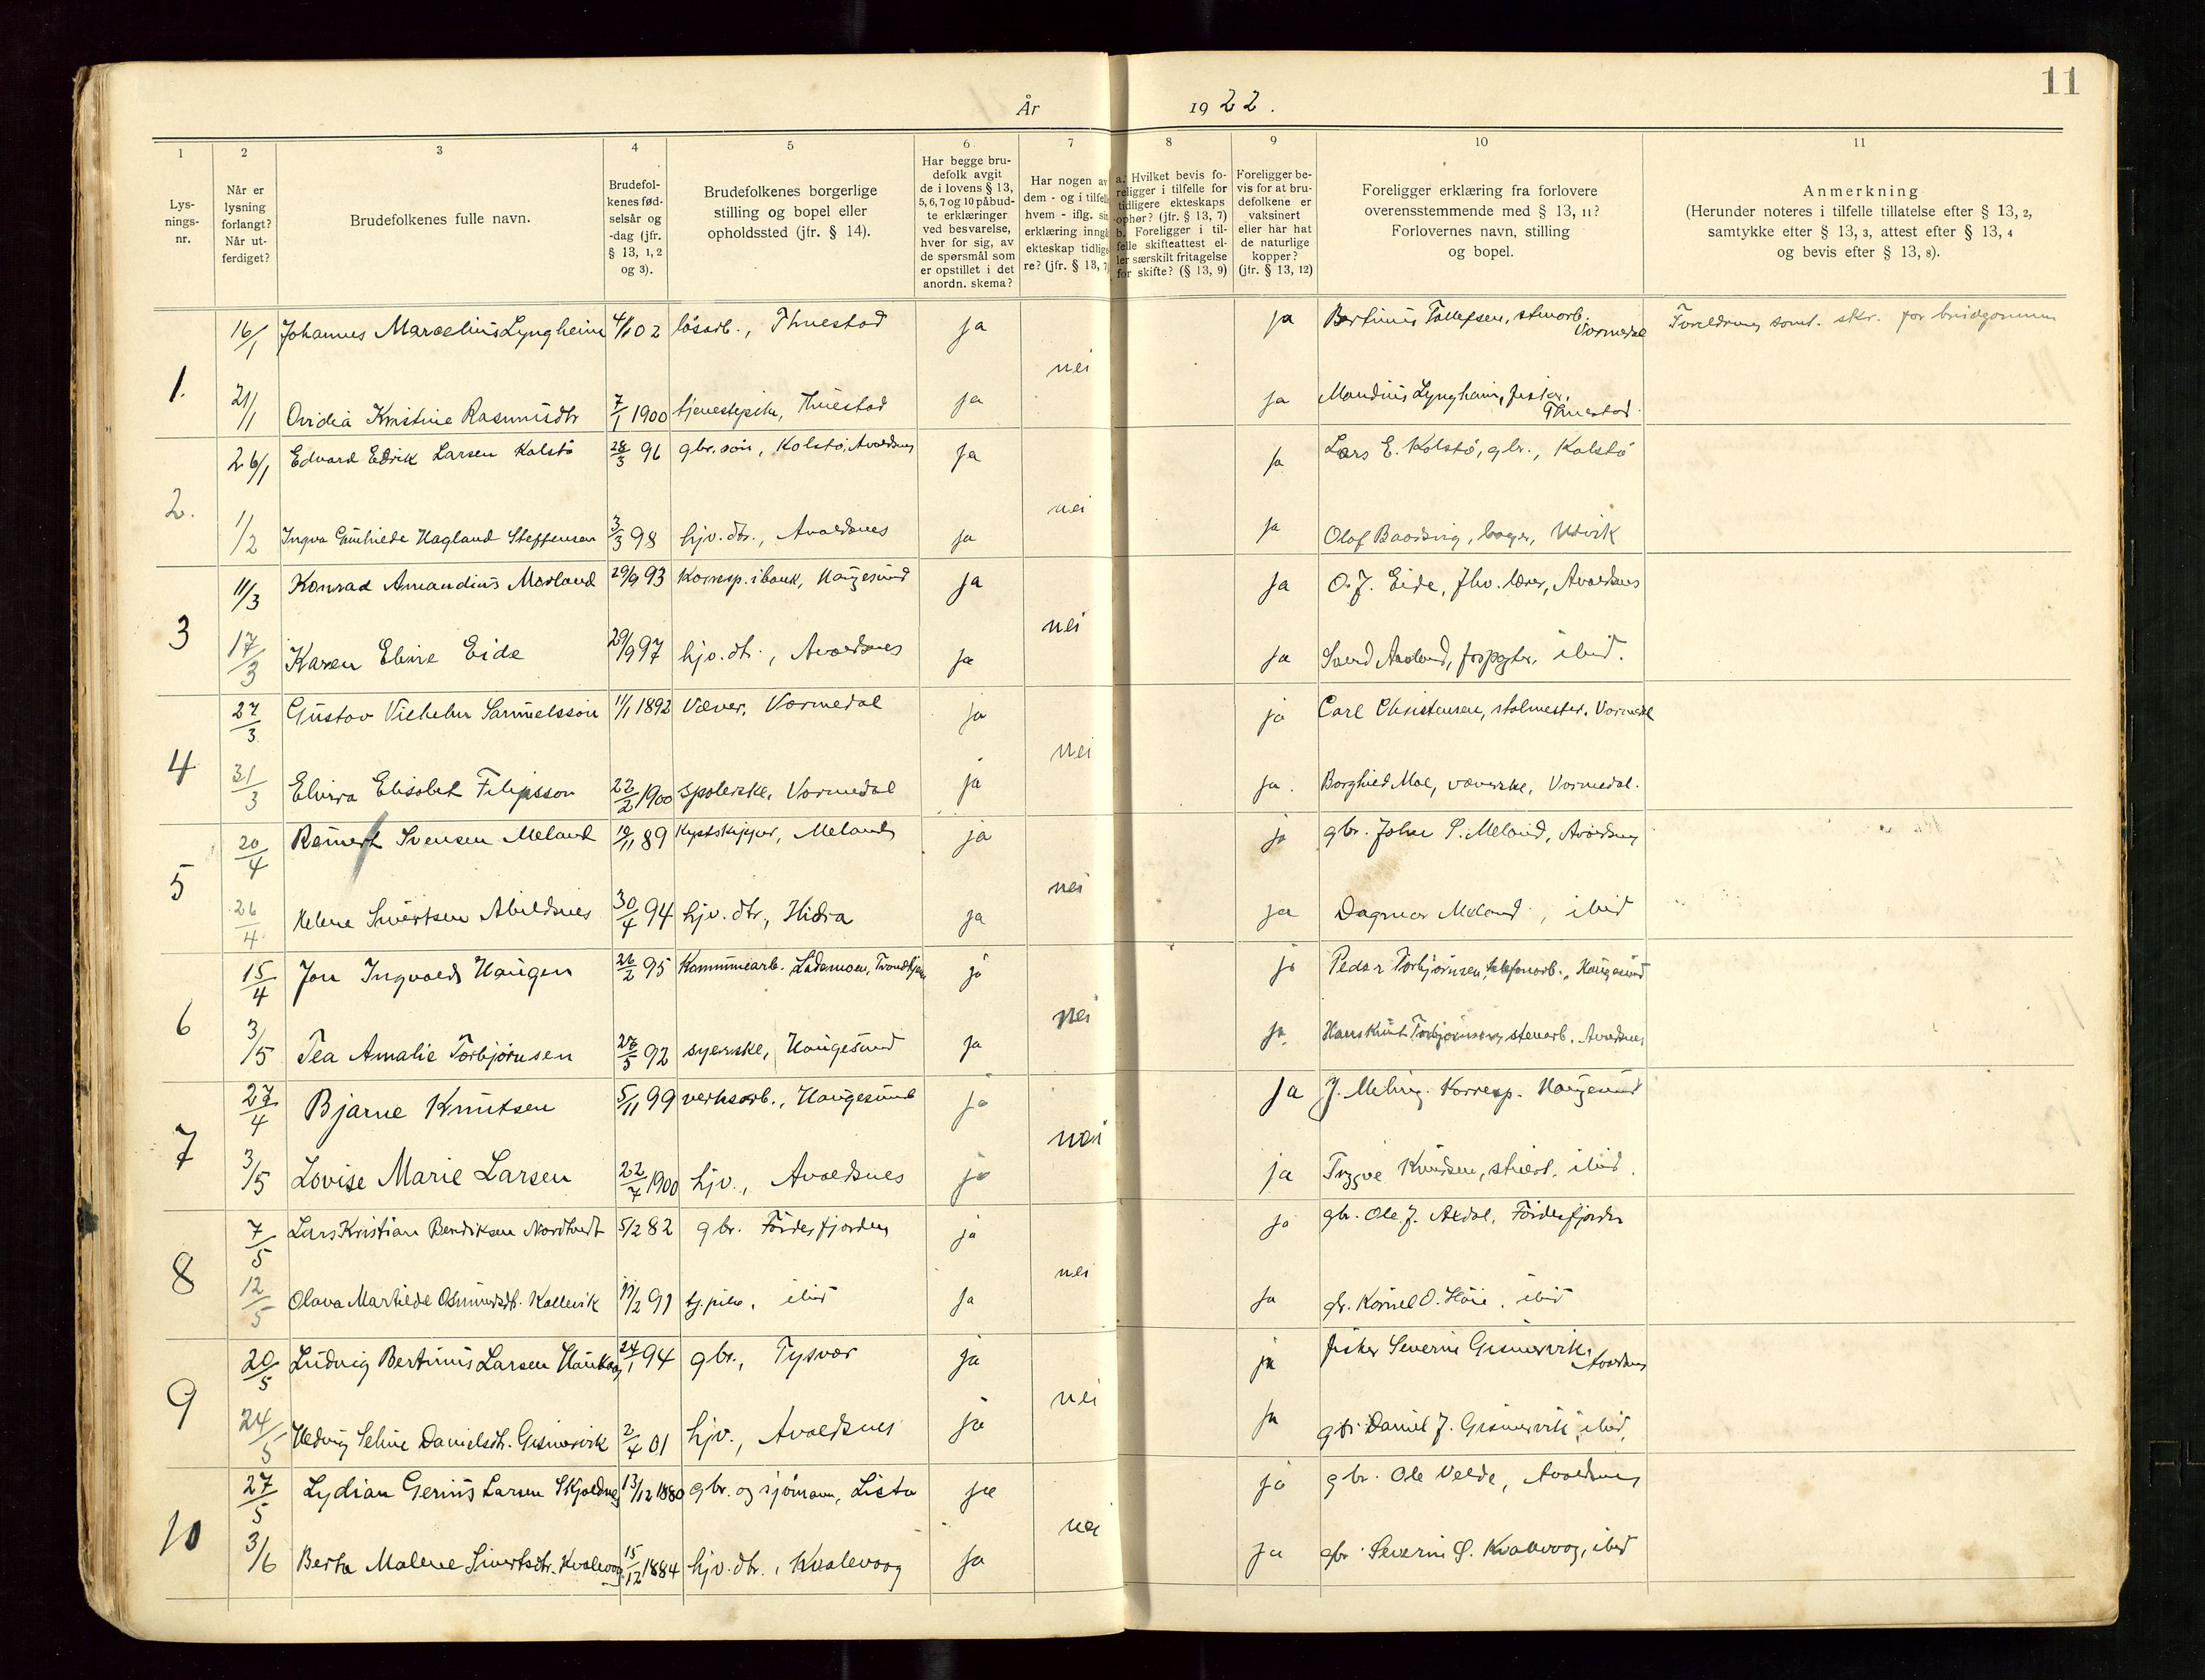 11
År 1922.
1
2
3
4
5
6
7
8
9
10
11
Lys-
nings-
nr.
Når er
lysning
forlangt?
Når ut-
ferdiget?
Brudefolkenes fulle navn.
Brudefol-
kenes fød-
selsår og
-dag (jfr.
§ 13, 1, 2
og 3).
Brudefolkenes borgerlige
stilling og bopel eller
opholdssted (jfr. § 14).
Har begge bru-
defolk avgit
de i lovens § 13,
5, 6, 7 og 10 påbud-
te erklæringer
ved besvarelse,
hver for sig, av
de spørsmål som
er opstillet i det
anordn. skema?
Har nogen av
dem - og i tilfelle
hvem - iflg. sin
erklæring inngå
ekteskap tidlige
re? (jfr. § 13, 7)
a. Hvilket bevis fo-
religger i tilfelle for
tidligere ekteskaps
ophør? (jfr. § 13, 7)
b. Foreligger i til-
felle skifteattest el-
ler særskilt fritagelse
for skifte? (§ 13, 9)
Foreligger be-
vis for at bru-
defolkene er
vaksinert
eller har hat
de naturlige
kopper?
(jfr. § 13, 12)
Foreligger erklæring fra forlovere
overensstemmende med § 13, 11?
Forlovernes navn, stilling
og bopel.
Anmerkning
(Herunder noteres i tilfelle tillatelse efter § 13, 2,
samtykke efter § 13, 3, attest efter § 13, 4
og bevis efter § 13, 8).
1. 16/1 Johannes Marcelius Lyngheim 4/1 02 løsarb., Thuestad ja nei ja Bertinus Tollefsen, Vormedal for brudgommen
21/1 Ovidia Kristine Rasmusdtr 7/1 1900 tjenestepike, Thuestad ja ja Mandius Lyngheim, fisker, Thuestad
2. 26/1 Edvard Edrik Larsen Kolstø 28/3 96 gbr. søn, Kolstø, Avaldsnes ja nei ja Lars E. Kolstø, gbr., Kolstø
1/2 Ingva Gunhilde Hagland Steffensen 3/3 98 hjv. dtr., Avaldsnes ja ja Olaf Baadsvig, bager, Utvik
3 11/3 Konrad Amandius Mæland 29/9 93 Korresp. i bank, Haugesund ja nei ja O. J. Eide, fhv. lærer, Avaldsnes
17/3 Karen Eline Eide 29/9 97 hjv. dtr., Avaldsnes ja ja ibid.
4 27/3 Gustav Vilhelm Samuelsson 11/1 1892 Væver, Vormedal ja nei ja Carl Christensen, stolmester, Vormedal
31/3 Elvira Elisabet Filipsson 22/2 1900 Spolerske, Vormedal ja ja. Borghild Moe, væverske, Vormedal.
5 20/4 Reinert Svensen Meland 19/11 89 Kystskipper, Meland ja nei ja gbr. John S. Meland, Avaldsnes
26/4 Helene Sivertsen Abildsnes 30/4 94 hjv. dtr., Hidra ja ja Dagmar Meland, ibid
6 15/4 Jon Ingvald Haugen 26/2 95 Kommunearb. Lademoen, Trondhjem ja nei ja Peder Torbjørnsen, telefonarb., Haugesund
3/5 Tea Amalie Torbjørnsen 28/5 92 syerske, Haugesund ja ja Hans Knut Torbjørnsen, stenarb. Avaldsnes
7 27/4 Bjarne Knutsen 5/11 99 verksarb., Haugesund ja nei ja J. Meling. Korresp. Haugesund
3/5 Lovise Marie Larsen 22/7 1900 hjv., Avaldsnes ja ja Trygve Knudsen, ibid.
8 7/5 Lars Kristian Bendiksen Nordtvedt 5/2 82 gbr. Førdesfjorden ja nei ja gbr. Ole J. Axdal, Førdesfjorden
12/5 Olava Martilde Osmundsdtr. Kallevik 19/2 91 tj.pike, ibid ja ja gbr. Kornel O. Høie, ibid
9 20/5 Ludvig Bertinus Larsen 24/1 94 gbr., Tysvær ja nei ja fisker Severin Gismervik, Avaldsnes
24/5 Hedvig Seline Danielsdtr. Gismervik 2/4 01 hjv., Avaldsnes ja ja gbr. Daniel J. Gismervik, ibid.
10 27/5 Lydian Gerius Larsen Skjoldnes 13/12 1880 gbr. og sjømann, Lista ja nei ja gbr. Ole Velde, Avaldsnes
3/6 Berta Malene Sivertsdtr. Kvalevaag 15/12 1884 hjv. dtr., Kvalevaag ja ja gbr. Severin S. Kvalevaag, ibid